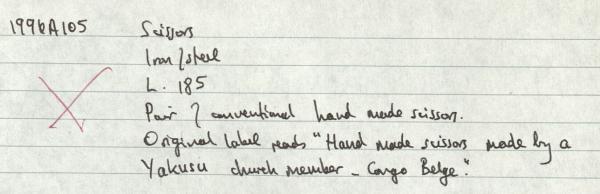 1996A105 Scissors
Iron/steel
L. 185
Pair of conventional hand made scissors.
Original label reads "Hand made scissors made by a
Yakusu church member - Congo Belge".